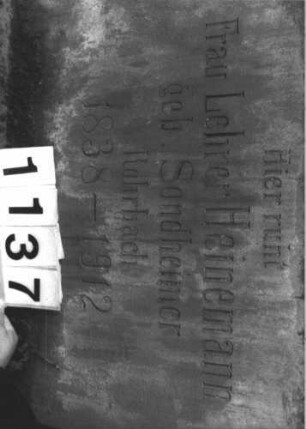 Hier ruht
Frau Lehrer Heinemann
geb. Sondheimer
Rohrbach
1838–1912
1137